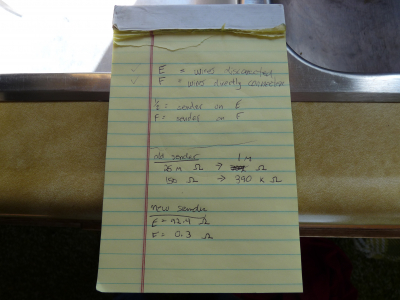 ✓ E = wires disconnected
✓ F = wires directly connected
E = sender on E
F = sender on F
old sender 1 M
26 M Ω → Ω
150 Ω → 390 K Ω
new sender
E = 92.9 Ω
F = 0.3 Ω